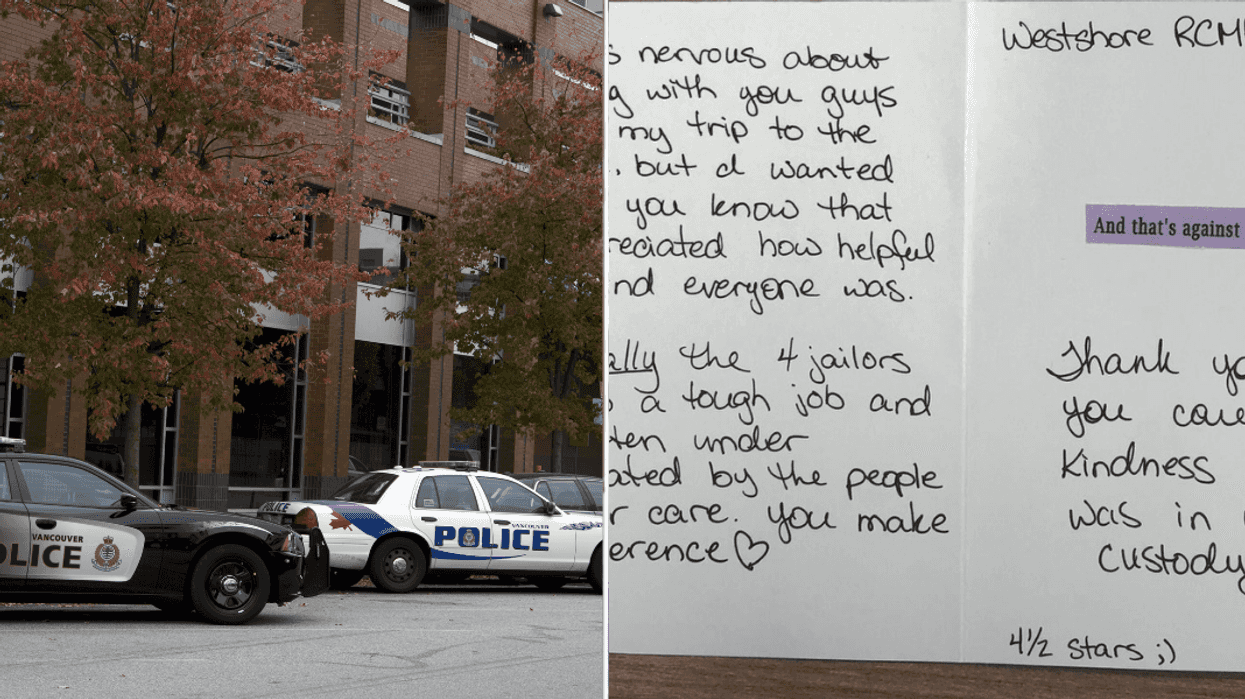 VANCOUVER
POLICE
POLICE
VANCOUVER
POLICE
s nervous about
g with you guys
my trip to the
. but I wanted
you know that
reciated how helpful
nd everyone was.
ally the 4 jailors
a tough job and
ten under
ated by the people
r care. you make
erence♡
Westshore RCM
And that's against
Thank yo
you
Kindness
was in
Custody
4½ stars ;)